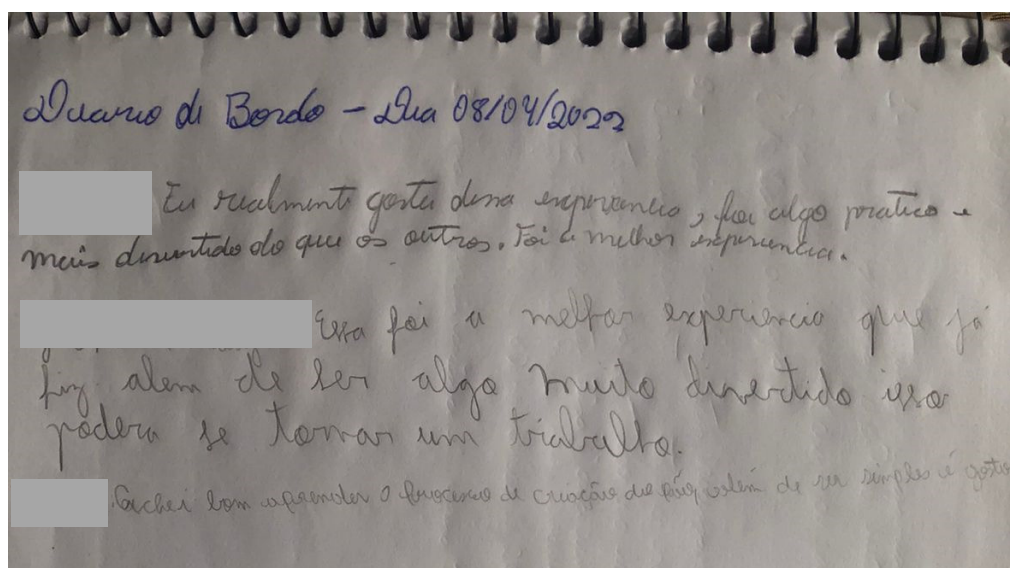 Diario de Bordo - Dia 08/04/2022
Eu realmente gostei dessa experiencia, foi algo pratico e
mais divertido do que os outros. Foi a melhor experiencia.
Essa foi a melhor experiencia que já
fiz alem de ser algo muito divertido isso
podera se tornar um trabalho.
achei bom aprender o processo de criação do pão, além de ser simples é